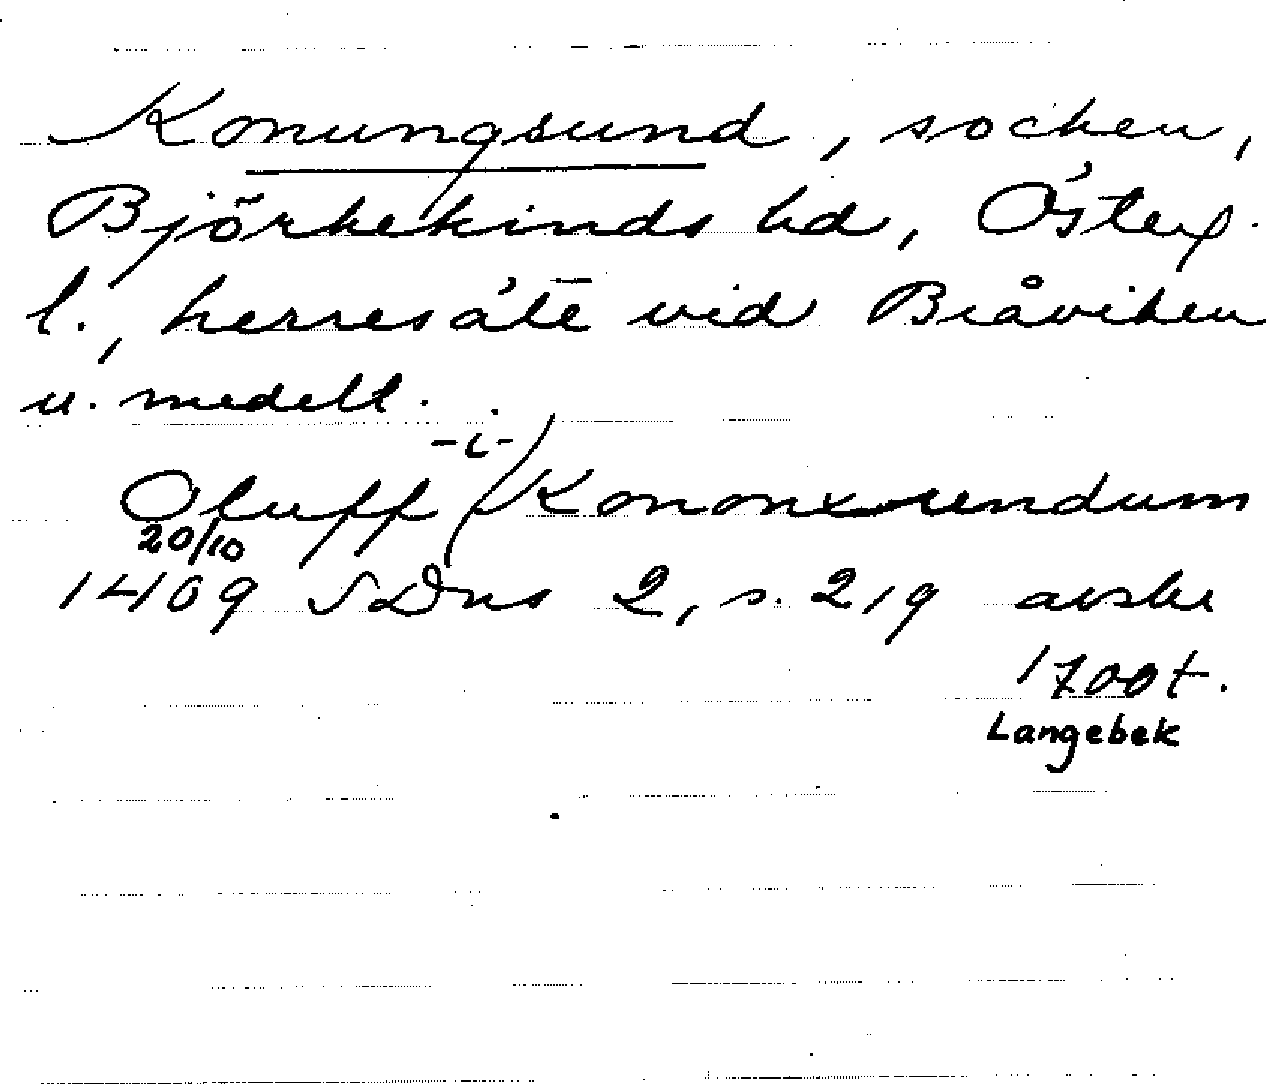 Konungsund, socken,
Björkekinds hd, Österg.
l., herresäte vid Bråviken
u. medelt.
-i-
Oluff Kononxsundum
20/10
1409 SDns 2, s. 219 avskr
1700t.
Langebek